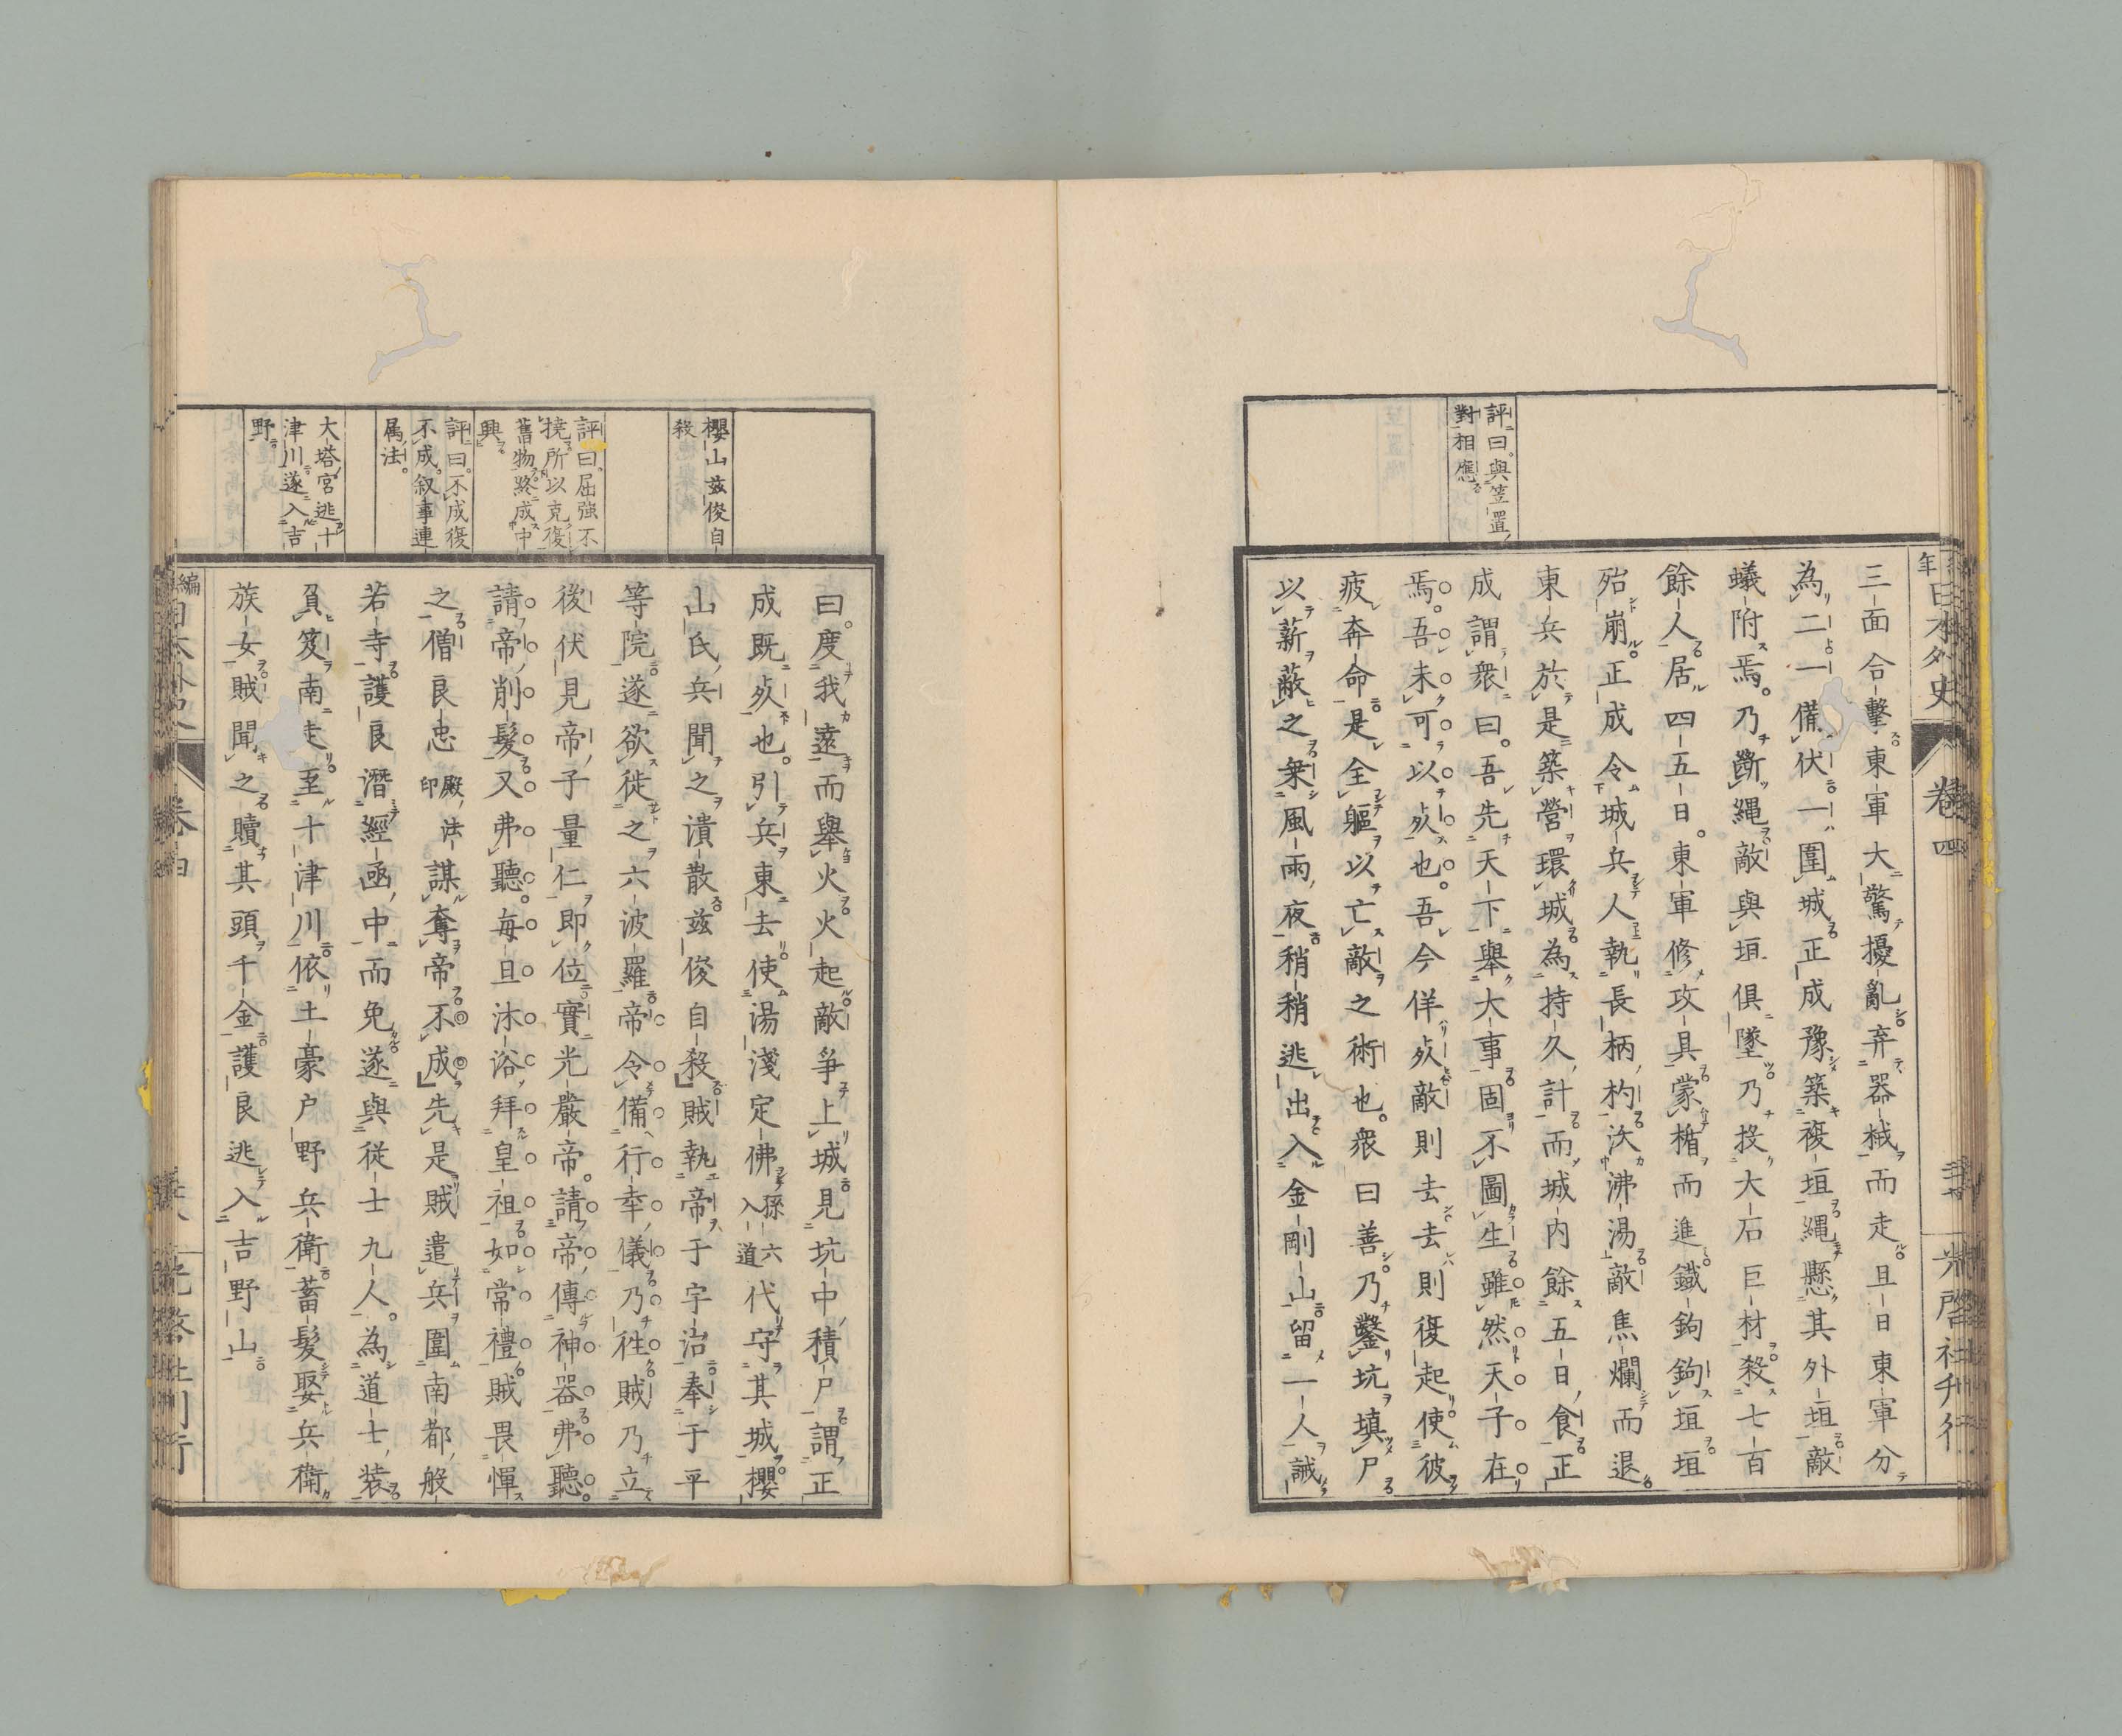 年日本外史
卷四
光啓社刊行
評曰與笠置
對相應
三面合擊東軍大驚擾亂弃器械而走且日東軍分
為二一備伏一圍城正成豫築複垣繩懸其外垣敵
蟻附焉乃斷繩敵與垣俱墜乃投大石巨材殺七百
餘人居四五日東軍修攻具蒙楯而進鐵鉤鉤垣垣
殆崩正成令城兵人執長柄杓沃沸湯敵焦爛而退
東兵於是築營環城為持久計而城内餘五日食正
成謂衆曰吾先天下舉大事固不圖生雖然天子在
焉吾未可以死也吾今佯死敵則去去則復起使彼
疲奔命是全軀以亡敵之術也衆曰善乃鑿坑填尸
以薪蔽之乘風雨夜稍稍逃出入金剛山留一人誡
櫻山茲俊自
殺
評曰屈強不
撓所以克復
舊物終成中
興
評曰不成復
不成叙事連
属法
大塔宮逃十
津川遂入吉
野
曰度我遠而舉火火起敵爭上城見坑中積尸謂正
成既死也引兵東去使湯淺定佛孫六入道代守其城櫻
山氏兵聞之潰散茲俊自殺賊執帝于宇治奉于平
等院遂欲徙之六波羅帝令備行幸儀乃往賊乃立
後伏見帝子量仁即位實光嚴帝請帝傳神器弗聽
請帝削髮又弗聽每旦沐浴拜皇祖如常禮賊畏憚
之僧良忠殿法印謀奪帝不成先是賊遣兵圍南都般
若寺護良潛經函中而免遂與從士九人為道士裝
負笈南走至十津川依土豪戶野兵衛蓄髮娶兵衛
族女賊聞之贖其頭千金護良逃入吉野山
編日本外史
卷四
光啓社刊行